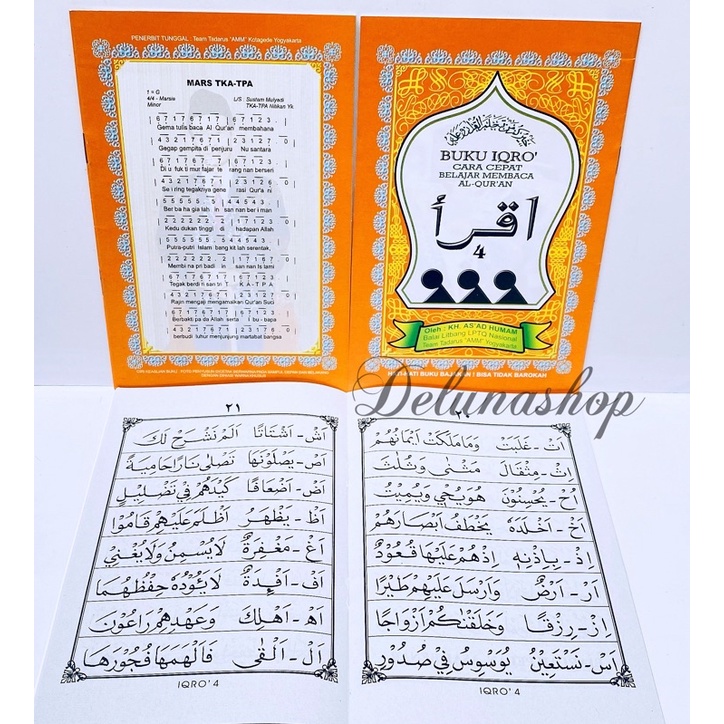 PENERBIT TUNGGAL : Team Tadarus "AMM" Kotagede Yogyakarta
MARS TKA-TPA
1 = G
4/4 - Marsia
Minor
L/S : Sustam Mulyadi
TKA-TPA Nitikan Yk.
Gema tulis baca Al Qur'an membahana
Gegap gempita di penjuru Nusantara
Di u fuk ti mur fajar te rang nan berseri
Se i ring tegaknya gene rasi Qur'a ni
Ber ba ha gia lah in san nan ber i man
Kedu dukan tinggi di hadapan Allah
Putra-putri Islam bang kit lah serentak,
Membi na pri badi in san nan Is lami
Tegak berdi ri san tri K - A - T P A
Rajin mengaji mengamalkan Qur'an Suci
Berbakti pa da Allah serta I bu - bapa
berbudi luhur menjunjung martabat bangsa
BUKU IQRO'
CARA CEPAT
BELAJAR MEMBACA
AL-QUR'AN
اقرأ
4
Oleh : KH. AS'AD HUMAM
Balai Litbang LPTQ Nasional
Team Tadarus "AMM" Yogyakarta
BUKU BAJAKAN ! BISA TIDAK BAROKAH
Delunashop
٢٠
اَتْ - غَلَبَتْ وَمَامَلَكَتْ اَيْمَانُهُمْ
اِثْ - مِثْقَالَ مَثْنٰى وَثُلٰثَ
اُحْ - يُحْسِنُوْنَ هُوَيُحْيِ وَيُمِيْتُ
اَخْ - اَخْلَدَهٗ يَخْطَفُ اَبْصَارَهُمْ
اِذْ - بِاِذْنِهٖ اِذْهُمْ عَلَيْهَاقُعُوْدٌ
اَرْ - اَرْضٌ وَاَرْسَلَ عَلَيْهِمْ طَيْرًا
اِزْ - رِزْقًا وَخَلَقْنٰكُمْ اَزْوَاجًا
اَسْ - نَسْتَعِيْنُ يُوَسْوِسُ فِيْ صُدُوْرِ
IQRO' 4
٢١
اَشْ - اَشْتَاتًا اَلَمْ نَشْرَحْ لَكَ
اَصْ - يَصْلَوْنَهَا تَصْلٰى نَارًاحَامِيَةً
اَضْ - اَضْعَافًا كَيْدَهُمْ فِيْ تَضْلِيْلٍ
اَظْ - يَظْهَرُ اَظْلَمَ عَلَيْهِمْ قَامُوْا
اَغْ - مَغْفِرَةٌ لَايُسْمِنُ وَلَايُغْنِيْ
اَفْ - اَفْئِدَةٌ لَايَؤُدُهٗ حِفْظُهُمَا
اَهْ - اَهْلِكَ وَعَهْدِهِمْ رَاعُوْنَ
اَلْ - اَلْقٰى فَاَلْهَمَهَا فُجُوْرَهَا
IQRO' 4